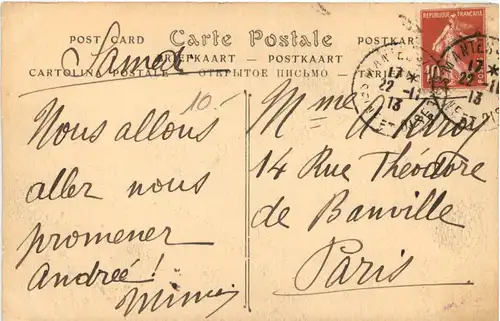 POST CARD Carte Postale POSTKARTE
BRIEFKAART — POSTKAART
CARTOLINA POSTALE — ОТКРЫТОЕ ПИСЬМО —
REPUBLIQUE FRANÇAISE
10
13 *
22 -11
13
13 *
22 -11
13
Samedi
10.-
Nous allons
aller nous
promener
Andrée !
Mimi
Mme
14 Rue Théodore
de Banville
Paris